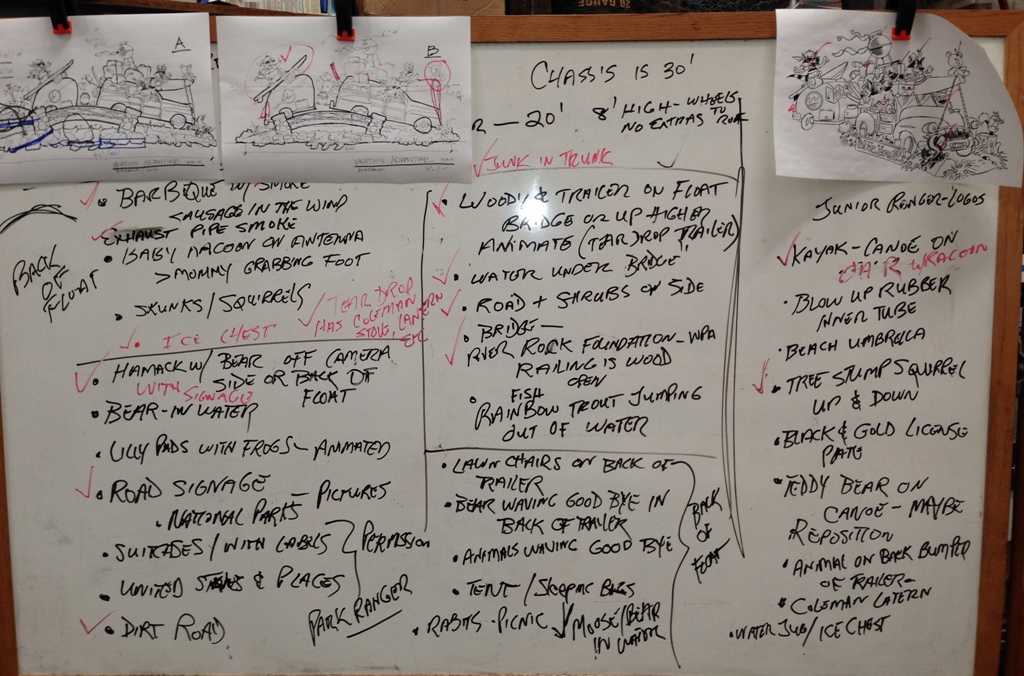 A
B
20 GAUGE
VACATION ADVENTURE
VACATION ADVENTURE
CHASS'S IS 30'
R — 20' 8' HIGH - WHEELS
NO EXTRAS TO ROOF
JUNK IN TRUNK
• BARBEQUE W/ SMOKE
SAUSAGE IN THE WIND
EXHAUST PIPE SMOKE
• BABY RACOON ON ANTENNA
> MOMMY GRABBING FOOT
BACK
OF
FLOAT
SKUNKS / SQUIRRELS
• ICE CHEST
TEAR DROP
HAS COLEMAN
STOVE, LANTERN
ETC
• HAMACK W/ BEAR OFF CAMERA
WITH SIGNAGE
SIDE OR BACK OF
FLOAT
• BEAR-IN WATER
LILLY PADS WITH FROGS - ANIMATED
• ROAD SIGNAGE
• NATIONAL PARKS - PICTURES
• SUITCASES / WITH LABELS
PERMISSION
UNITED STATES & PLACES
• DIRT ROAD
PARK RANGER
• WOODY & TRAILER ON FLOAT
BRIDGE OR UP HIGHER
ANIMATE (TEAR DROP TRAILER)
• WATER UNDER BRIDGE
• ROAD + SHRUBS ON SIDE
• BRIDGE —
RIVER ROCK FOUNDATION - WPA
RAILING IS WOOD
OPEN
• FISH
RAINBOW TROUT JUMPING
OUT OF WATER
• LAWN CHAIRS ON BACK OF
TRAILER
• BEAR WAVING GOOD BYE IN
BACK OF TRAILER
• ANIMALS WAVING GOOD BYE
• TENT / SLEEPING BAGS
• RABITS - PICNIC
MOOSE/BEAR
IN WATER
BACK
OF
FLOAT
JUNIOR RENGER-LOGOS
KAYAK - CANOE ON
CAR W/RACOON
• BLOW UP RUBBER
INNER TUBE
• BEACH UMBRELLA
• TREE STUMP SQUIRREL
UP & DOWN
• BLACK & GOLD LICENSE
PLATE
• TEDDY BEAR ON
CANOE - MAYBE
REPOSITION
• ANIMAL ON BACK BUMPER
OF TRAILER -
• COLEMAN LATERN
• WATER JUG / ICE CHEST